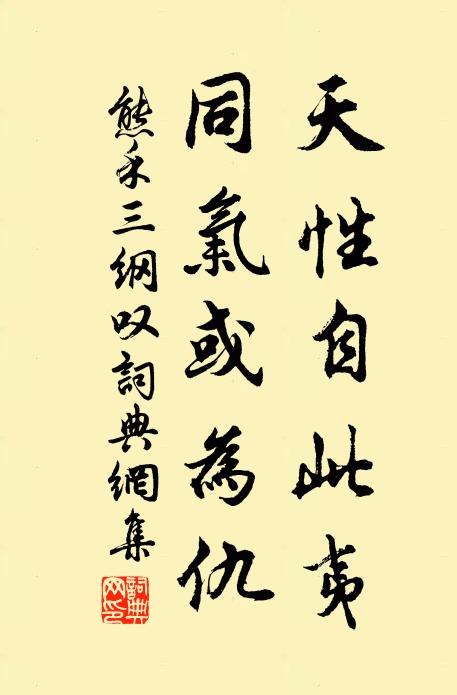 天性自此夷
同氣或為仇
熊禾三纲叹詞典網集
詞典网印